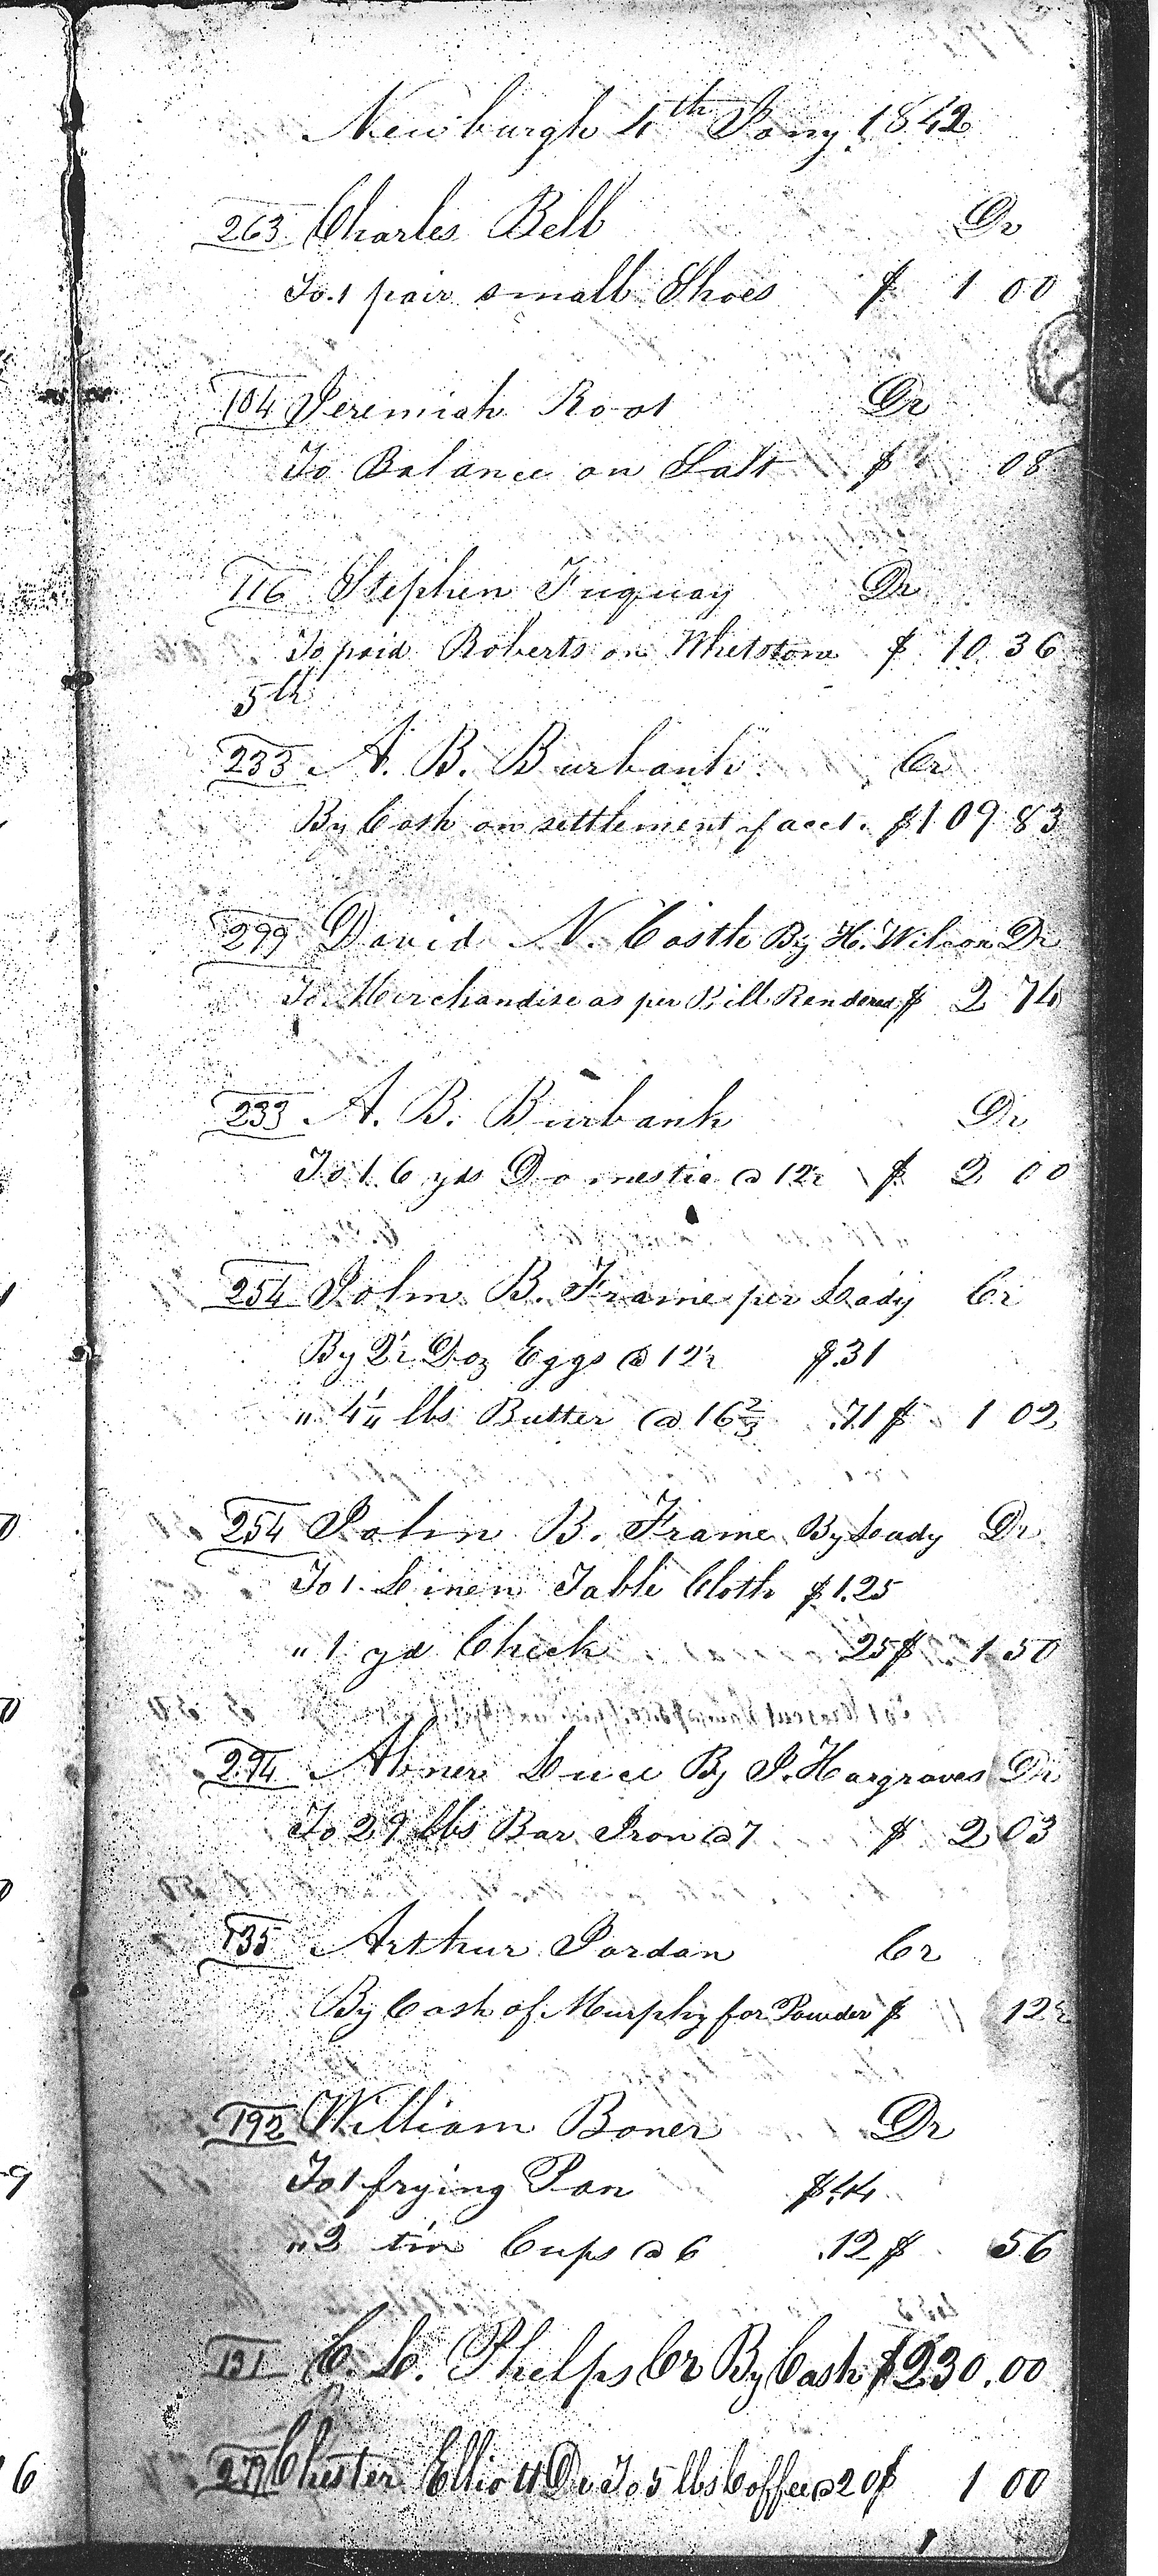 Newburgh 4th Jany 1842
263 Charles Bell Dr
To 1 pair small Shoes $ 1 00
104 Jeremiah Root Dr
To Balance on Salt $ 08
116 Stephen Fuquay Dr
To paid Roberts on Whetstone $ 10 36
5th
233 A. B. Burbank Cr
By Cash on settlement of acct. $109 83
299 David N. Castle By H. Wilson Dr
To Merchandise as per Bill Rendered $ 2 74
233 A. B. Burbank Dr
To 16 yds Domestic @ 12½ $ 2 00
254 John B. Frame per Lady Cr
By 2½ Doz Eggs @ 12½ $.31
" 4¼ lbs Butter @ 16⅔ .71 $ 1 02
254 John B. Frame By Lady Dr
To 1 Linen Table Cloth $1.25
" 1 yd Check 25 $ 1 50
294 Abner Luce By J. Hargraves Dr
To 29 lbs Bar Iron @ 7 $ 2 03
135 Arthur Jordan Cr
By Cash of Murphy for Powder $ 12½
192 William Boner Dr
To 1 frying Pan $.44
" 2 tin Cups @ 6 .12 $ 56
131 C. L. Phelps Cr By Cash $230.00
Chester Elliott Dr To 5 lbs Coffee @ 20 $ 1 00